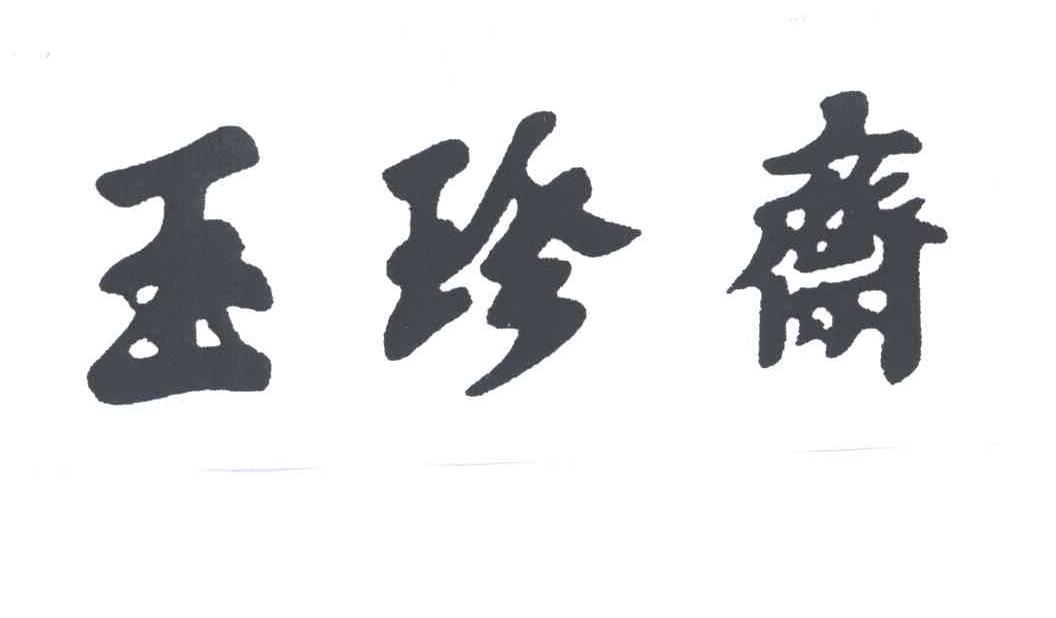 玉珍齋